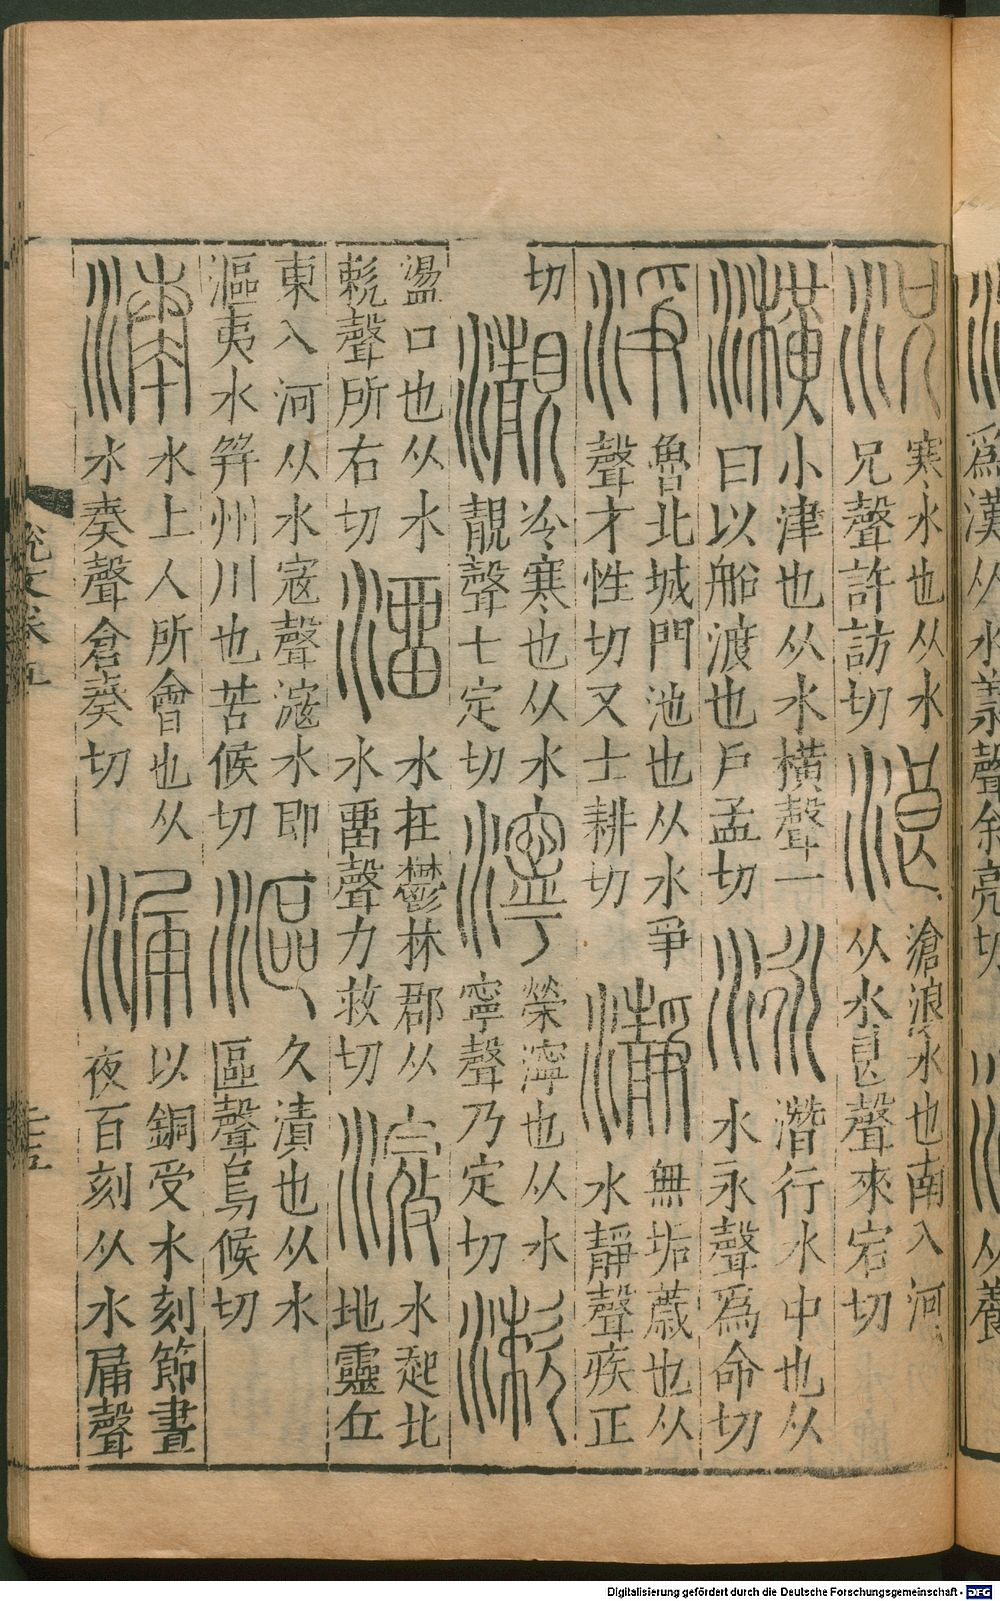 況寒水也从水
兄聲許訪切浪滄浪水也南入河
从水㫐聲來宕切
横小津也从水橫聲一
曰以船渡也戶孟切泳潛行水中也从
水永聲爲命切
淨魯北城門池也从水爭
聲才性切又士耕切瀞無垢薉也从
水靜聲疾正
切瀙冷寒也从水
靚聲七定切濘榮濘也从水
寧聲乃定切漱
盪口也从水
欶聲所右切溜水在鬱林郡从
水畱聲力救切滱水起北
地靈丘
東入河从水寇聲滱水即
漚夷水并州川也苦候切漚久漬也从水
區聲烏候切
湊水上人所會也从
水奏聲倉奏切漏以銅受水刻節晝
夜百刻从水屚聲
說文卷五
爲漢从水羕聲余亮切
从養
Digitalisierung gefördert durch die Deutsche Forschungsgemeinschaft - DFG